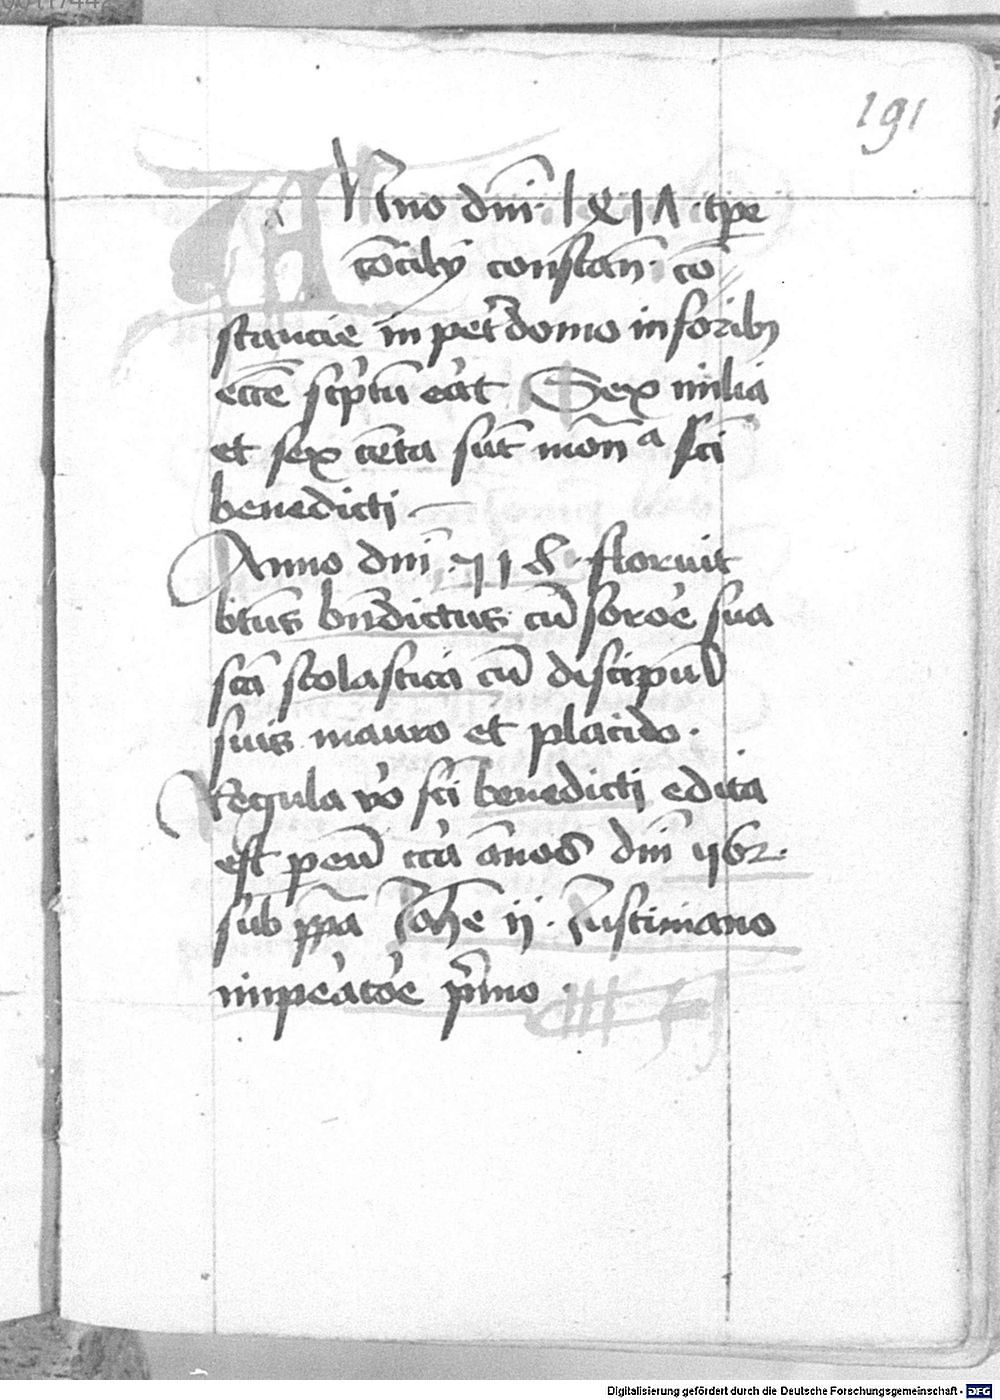 191
Anno dni · 1 &1Λ · tpe
cōcilij constan̄ · cō
stancie in pet'domo in foribꝫ
eccē sc'ptū erāt Sex milia
et sex cēta sūt mon̄ª sci
benedicti —
Anno dni · 518 · floruit
btūs bn̄dictus cū sorōe sua
scā scolastica cū discipul'
suis mauro et placido ·
Regula v'o sci benedicti edita
est p eū c'ca ānos dni
sub ppa Iohē ij · Iustiniano
impe'atōe p'mo ·
Digitalisierung gefördert durch die Deutsche Forschungsgemeinschaft - DFG